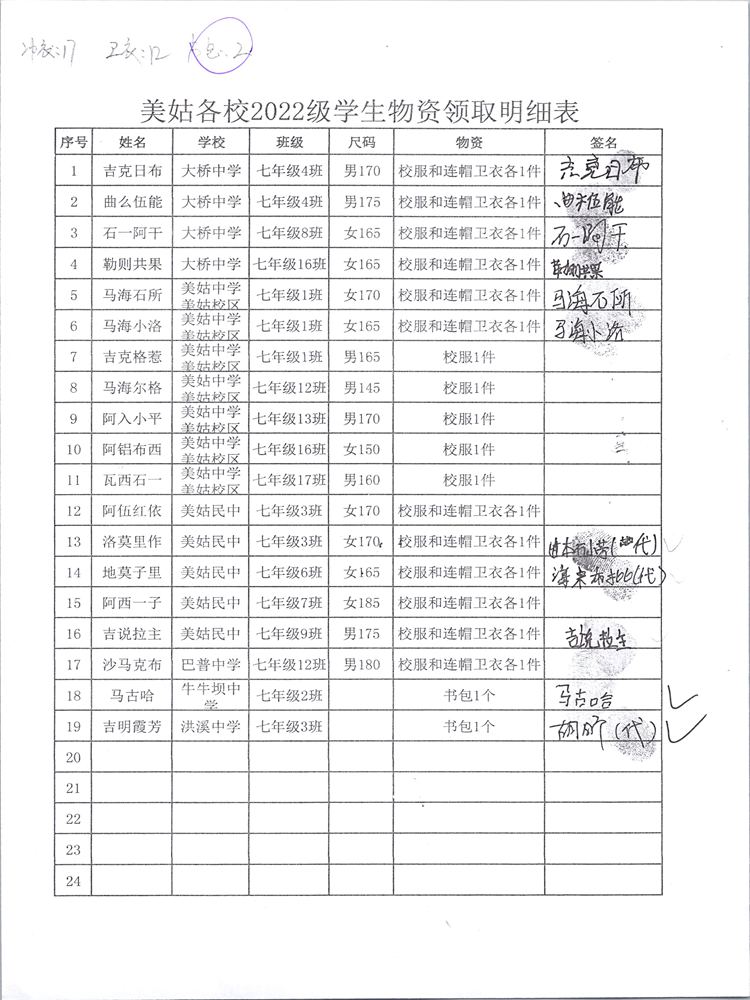 冲衣:17 卫衣:12 书包:2
美姑各校2022级学生物资领取明细表
序号 姓名 学校 班级 尺码 物资 签名
1 吉克日布 大桥中学 七年级4班 男170 校服和连帽卫衣各1件 吉克日布
2 曲么伍能 大桥中学 七年级4班 男175 校服和连帽卫衣各1件 曲么伍能
3 石一阿干 大桥中学 七年级8班 女165 校服和连帽卫衣各1件 石一阿干
4 勒则共果 大桥中学 七年级16班 女165 校服和连帽卫衣各1件 勒则共果
5 马海石所 美姑中学美姑校区 七年级1班 女170 校服和连帽卫衣各1件 马海石所
6 马海小洛 美姑中学美姑校区 七年级1班 女165 校服和连帽卫衣各1件 马海小洛
7 吉克格惹 美姑中学美姑校区 七年级1班 男165 校服1件
8 马海尔格 美姑中学美姑校区 七年级12班 男145 校服1件
9 阿入小平 美姑中学美姑校区 七年级13班 男170 校服1件
10 阿铝布西 美姑中学美姑校区 七年级16班 女150 校服1件
11 瓦西石一 美姑中学美姑校区 七年级17班 男160 校服1件
12 阿伍红依 美姑民中 七年级3班 女170 校服和连帽卫衣各1件
13 洛莫里作 美姑民中 七年级3班 女170 校服和连帽卫衣各1件 (代)
14 地莫子里 美姑民中 七年级6班 女165 校服和连帽卫衣各1件 (代)
15 阿西一子 美姑民中 七年级7班 女185 校服和连帽卫衣各1件
16 吉说拉主 美姑民中 七年级9班 男175 校服和连帽卫衣各1件 吉说拉主
17 沙马克布 巴普中学 七年级12班 男180 校服和连帽卫衣各1件
18 马古哈 牛牛坝中学 七年级2班 书包1个 马古哈
19 吉明霞芳 洪溪中学 七年级3班 书包1个 (代)
20
21
22
23
24